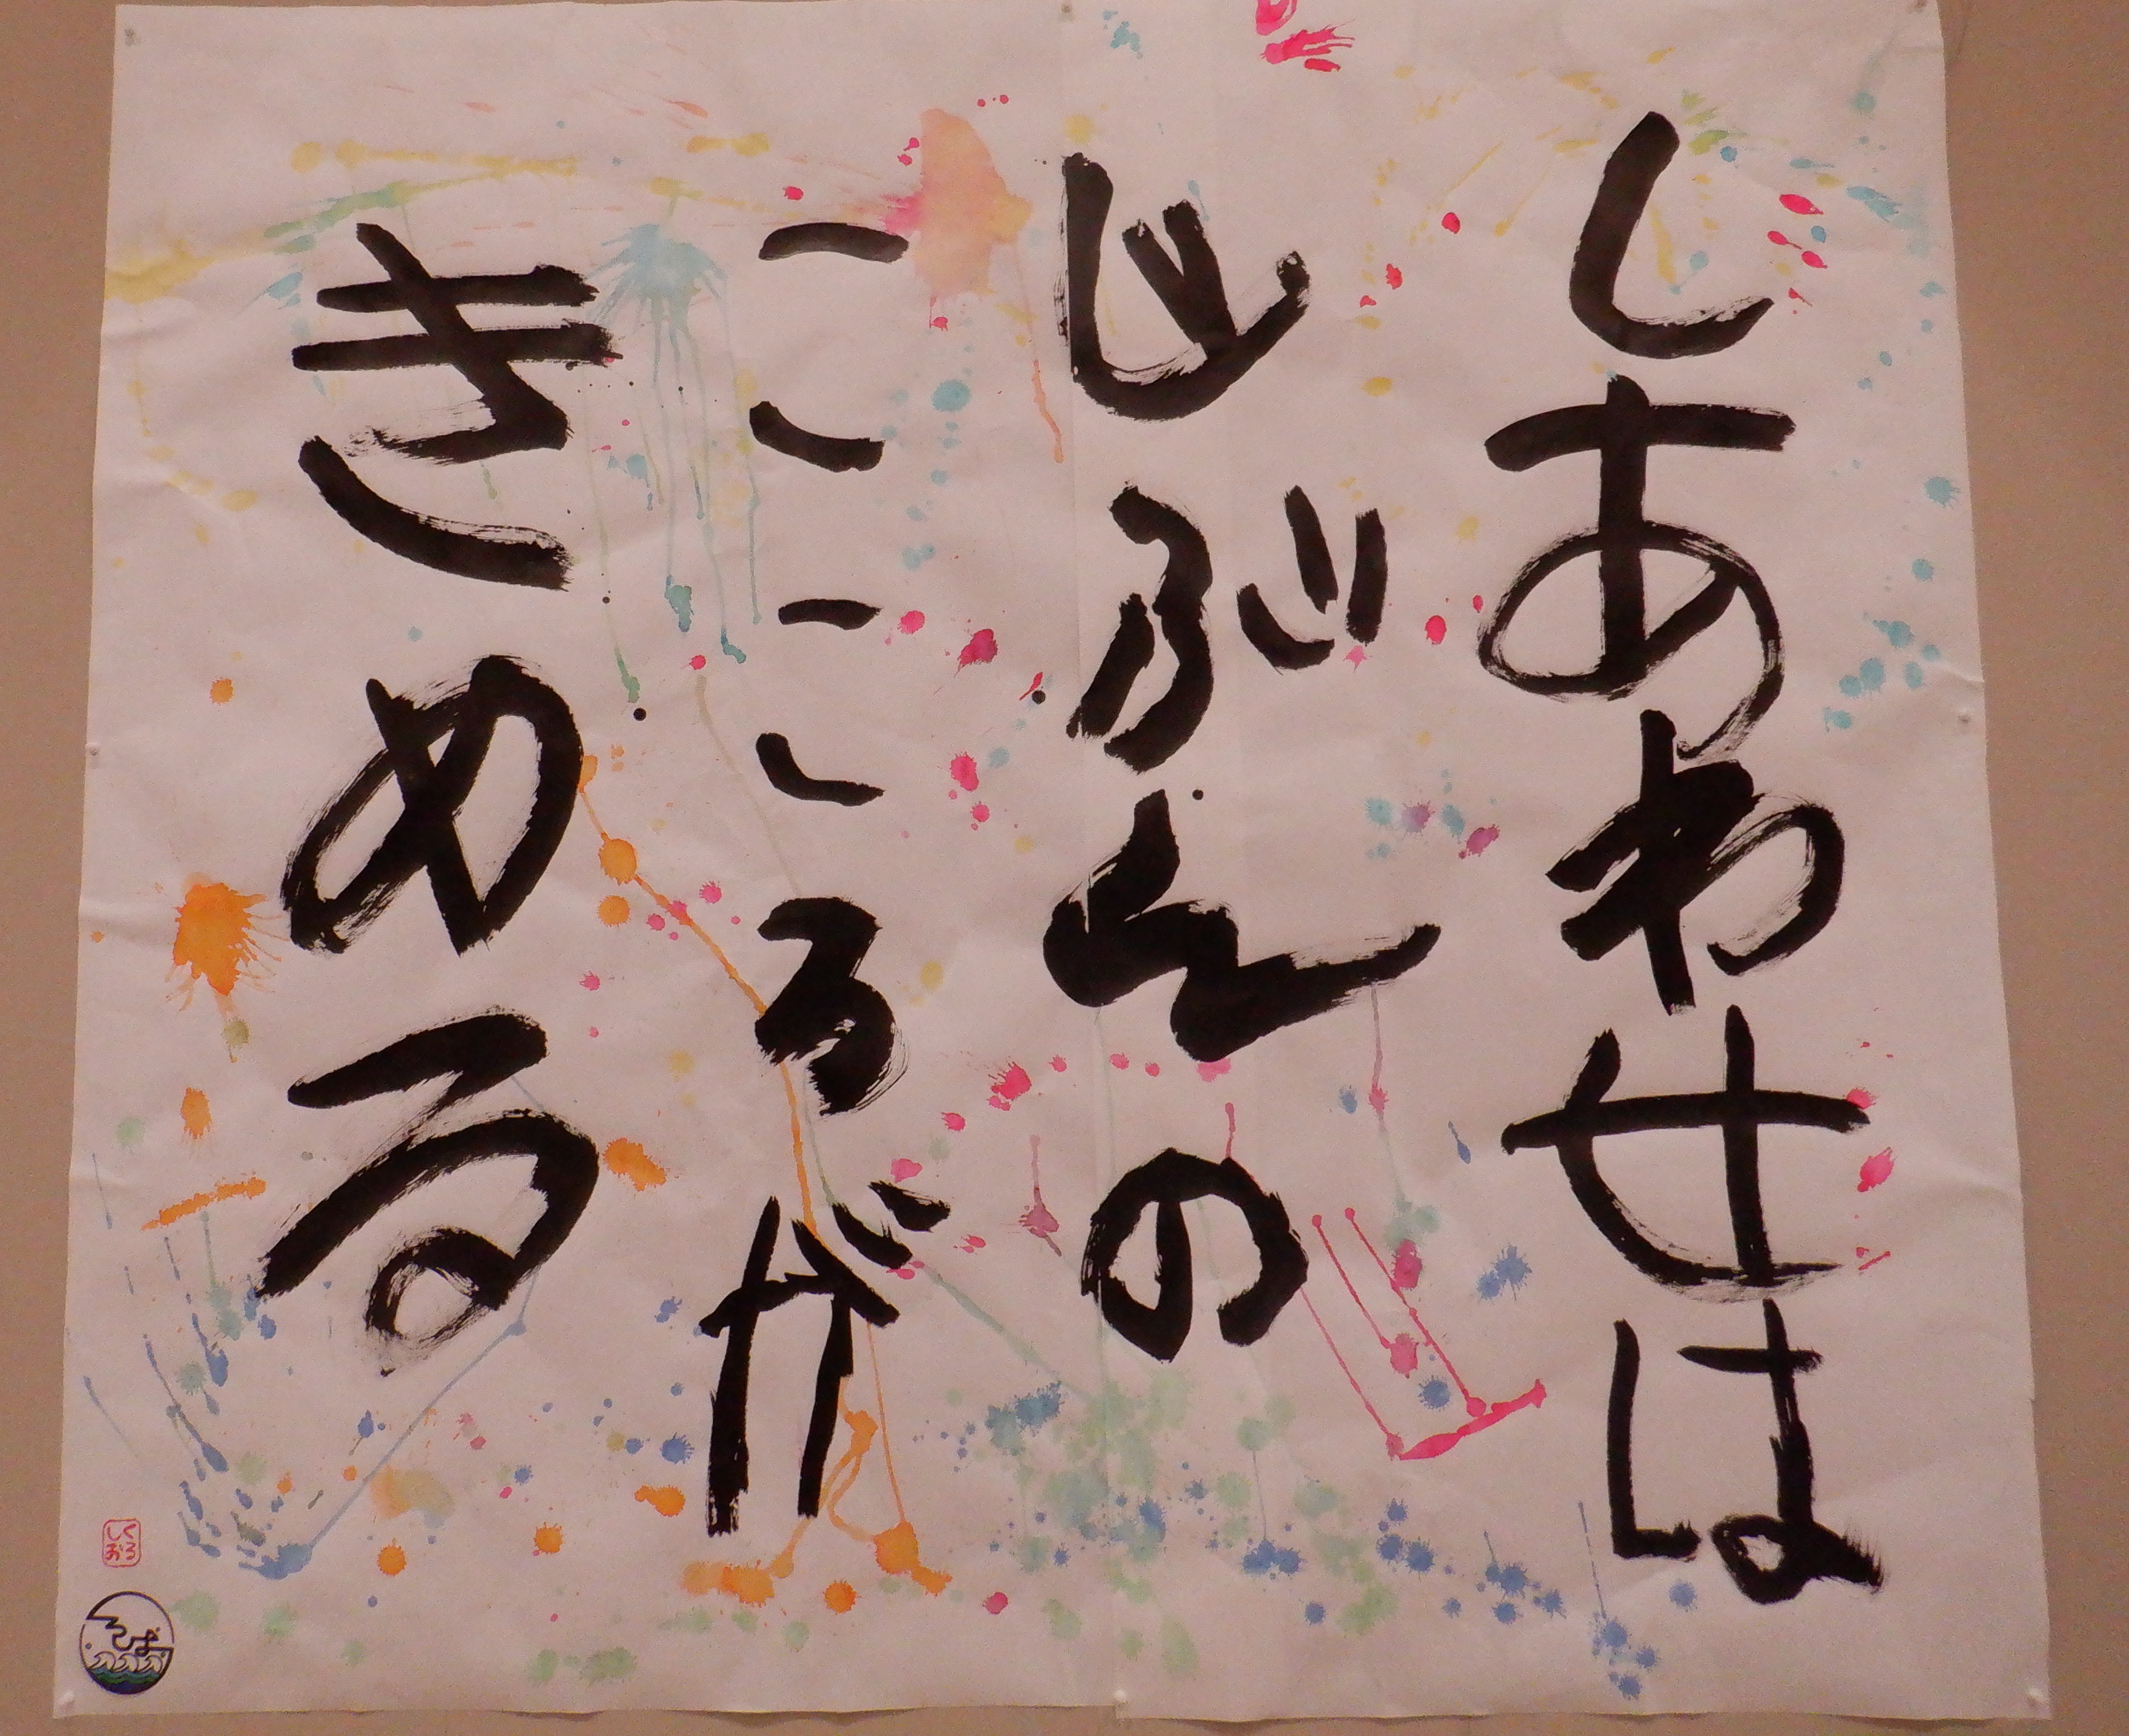 しあわせは
じぶんの
こころが
きめる
くろ
しお